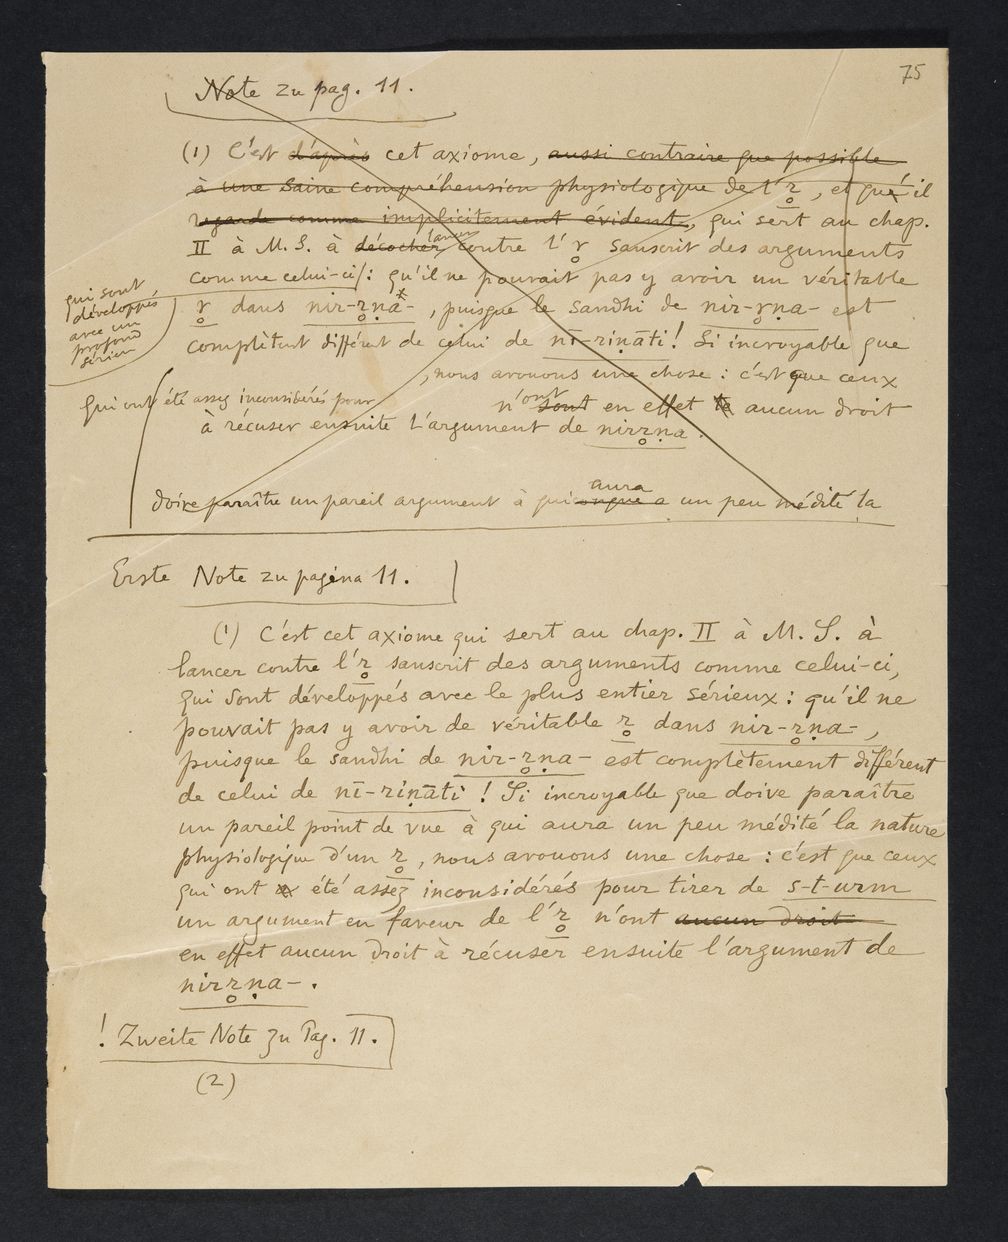 75
Note zu pag. 11.
(1) C'est d'après cet axiome, aussi contraire que possible
à une saine compréhension physiologique de l'r̥, et qu'il
regarde comme implicitement évident, qui sert au chap.
II à M. S. à décocher lancer contre l'r̥ sanscrit des arguments
comme celui-ci : qu'il ne pouvait pas y avoir un véritable
qui sont
développés
avec un
profond
sérieux
r̥ dans nir-r̥ṇa-, puisque le sandhi de nir-r̥ṇa- est
complètent différent de celui de nī-riṇāti! Si incroyable que
, nous avouons une chose : c'est que ceux
qui ont été assez inconsidérés pour
n'ont sont en effet aucun droit
à récuser ensuite l'argument de nirr̥ṇa.
doive paraître un pareil argument à qui aura a un peu médité la
Erste Note zu pagina 11.
(1) C'est cet axiome qui sert au chap. II à M. S. à
lancer contre l'r̥ sanscrit des arguments comme celui-ci,
qui sont développés avec le plus entier sérieux : qu'il ne
pouvait pas y avoir de véritable r̥ dans nir-r̥ṇa-,
puisque le sandhi de nir-r̥ṇa- est complètement différent
de celui de nī-riṇāti ! Si incroyable que doive paraître
un pareil point de vue à qui aura un peu médité la nature
physiologique d'un r̥, nous avouons une chose : c'est que ceux
qui ont été assez inconsidérés pour tirer de s-t-urm
un argument en faveur de l'r̥ n'ont aucun droit
en effet aucun droit à récuser ensuite l'argument de
nirr̥ṇa-.
! Zweite Note zu Pag. 11.
(2)